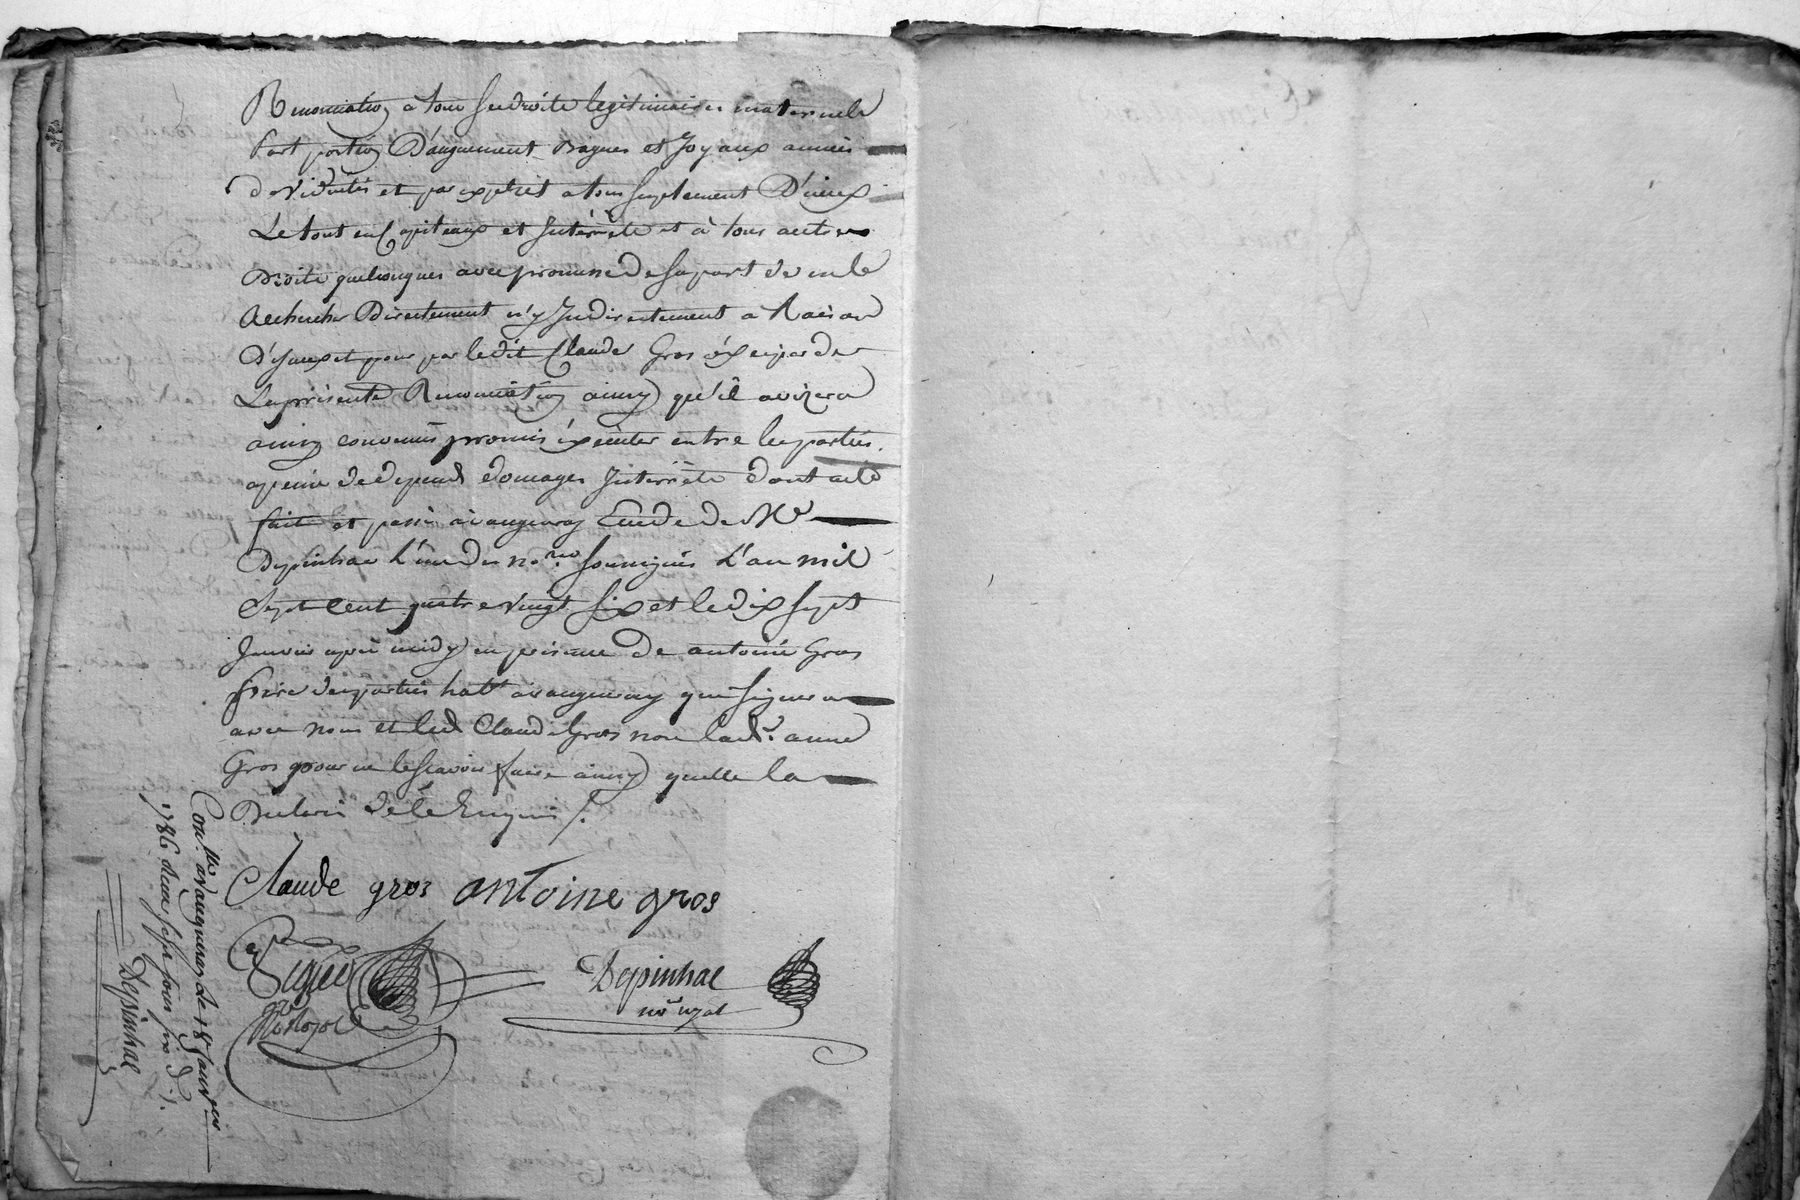 Renonciation a tous ses droits legitimaires maternels
part portion D'augument Bagues et Joyaux années
de Viduités et par exprès a tous suplement D'iceux
Le tout en Capiteaux et Intérrèts et à tous autres
Droits quelconques avec promesse de sa part de ne les
Rechercher Directement n'y Indirectement a Raison
D'yceux et pour par ledit Claude Gros
La présente Renonciation ainsy qu'il avizera
ainsy convenus promis éxecuter entre les parties
a peine de depends domages Interrèts dont acte
fait et passé à vaugneray Etude de Me
Depinhac L'un des nores soussignés L'an mil
Sept Cent quatre vingt six et le dix sept
Janvier après midy en présence de antoine Gros
frère des parties habt a vaugneray qui signera
avec nous et led Claude Gros non lade anne
Gros pour ne le scavoir faire ainsy quelle la
Declaré de ce Enquis /.
Claude gros antoine gros
Depinhac
nore
Conlle a Vaugneray le 18e Janvier
1786 Reçu sept sous six d.
Depinhac